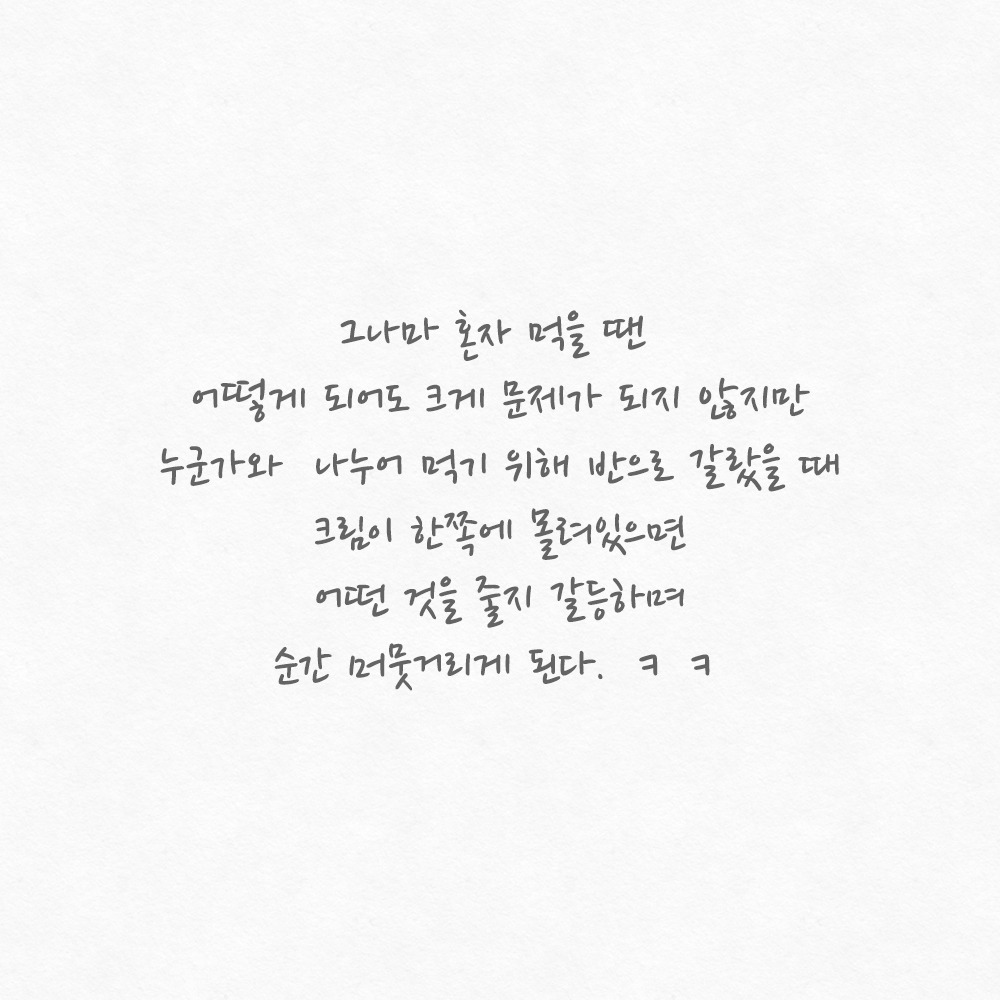 그나마 혼자 먹을 땐
어떻게 되어도 크게 문제가 되지 않지만
누군가와 나누어 먹기 위해 반으로 갈랐을 때
크림이 한쪽에 몰려있으면
어떤 것을 줄지 갈등하며
순간 머뭇거리게 된다. ㅋ ㅋ